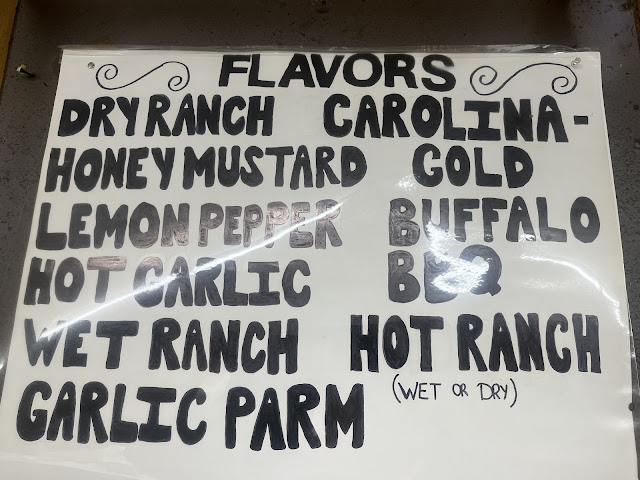 FLAVORS
DRY RANCH
HONEY MUSTARD
LEMON PEPPER
HOT GARLIC
WET RANCH
GARLIC PARM
CAROLINA-
GOLD
BUFFALO
BBQ
HOT RANCH
(WET OR DRY)